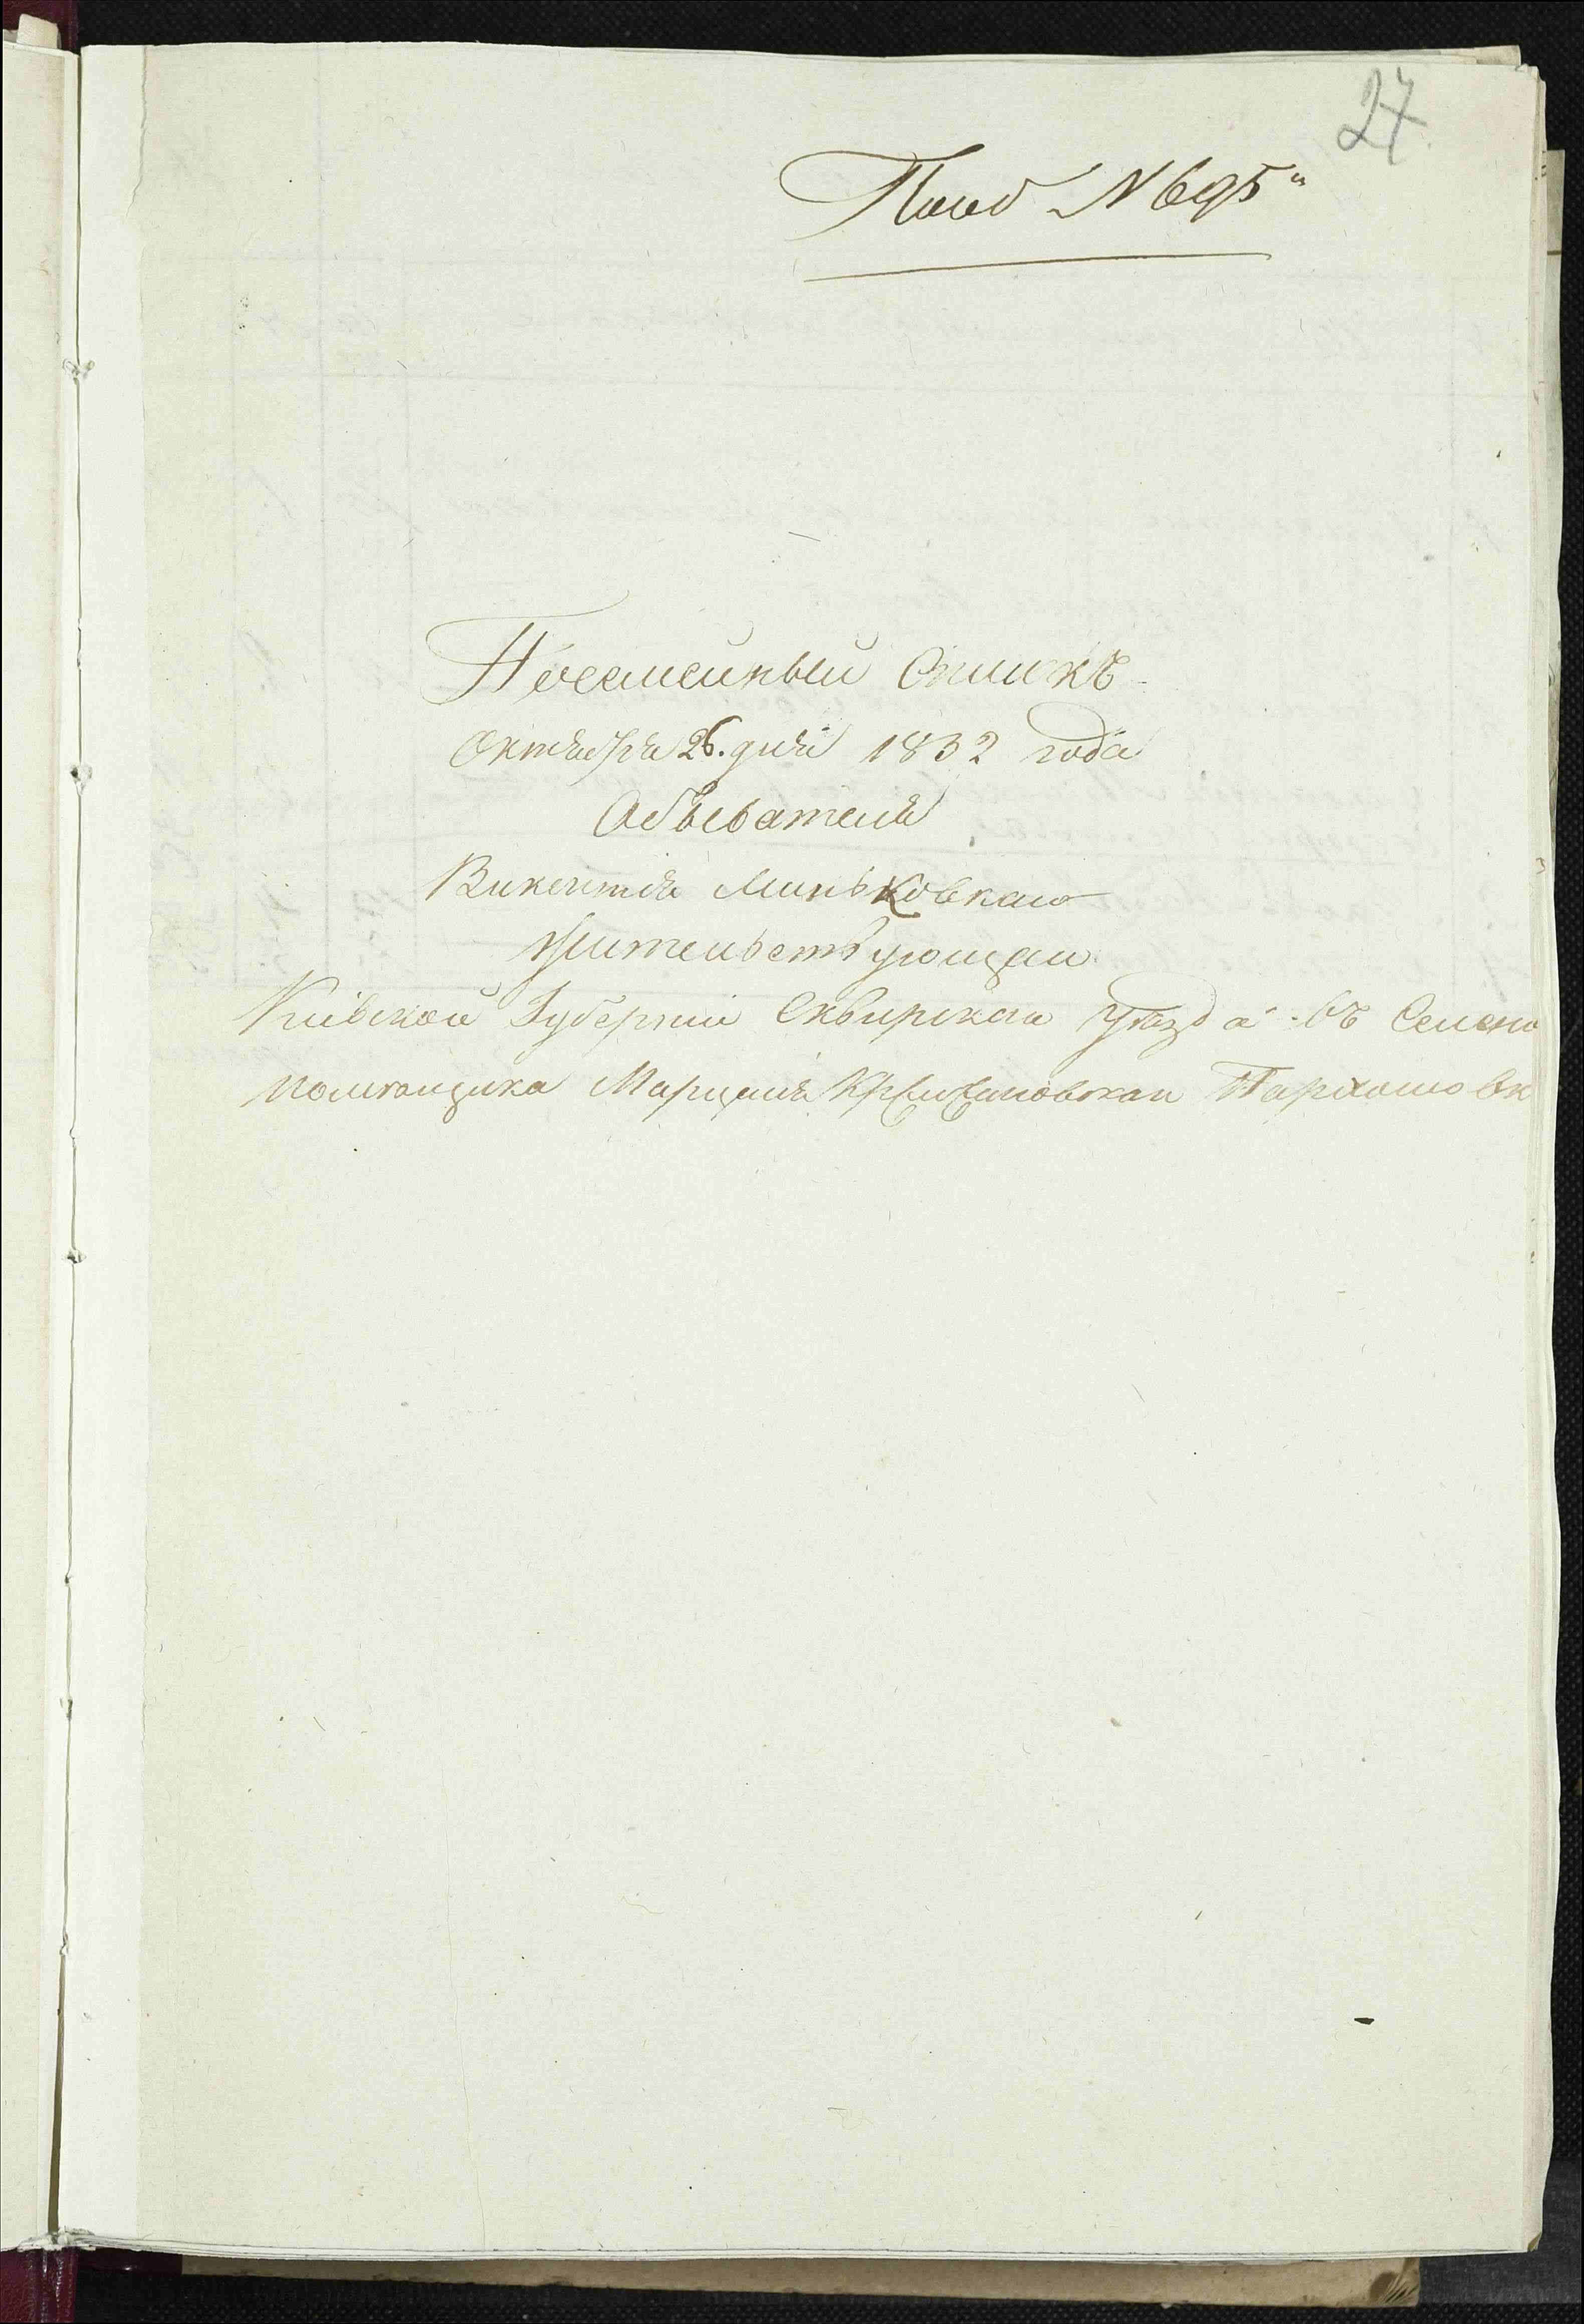 27
Подъ N 695"
Посемейный Списокъ
Октября 26. дня 1832 года
Обывателя
Викентия Миньковкаго
Жительствующаго
Киевской Губернии Сквирскаго Уѣзда въ Селени
Помѣщика Марцелія Пархомовк